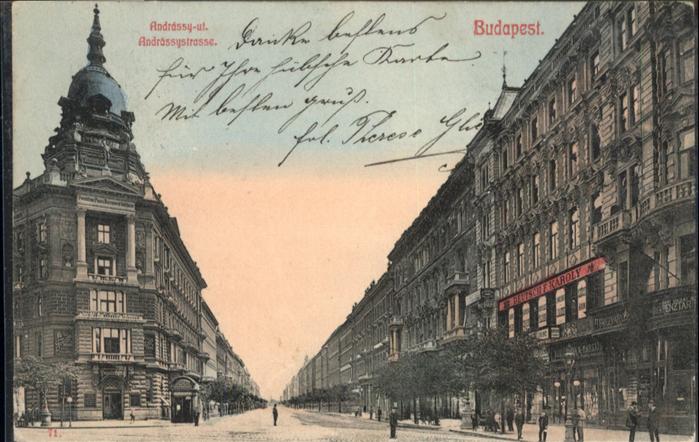 Andrássy-ut.
Andrássystrasse.
Budapest.
Danke bestens
für Ihre hübsche Karte
Mit besten gruß.
frl. Therese
DEUTSCH F. KÁROLY
71.